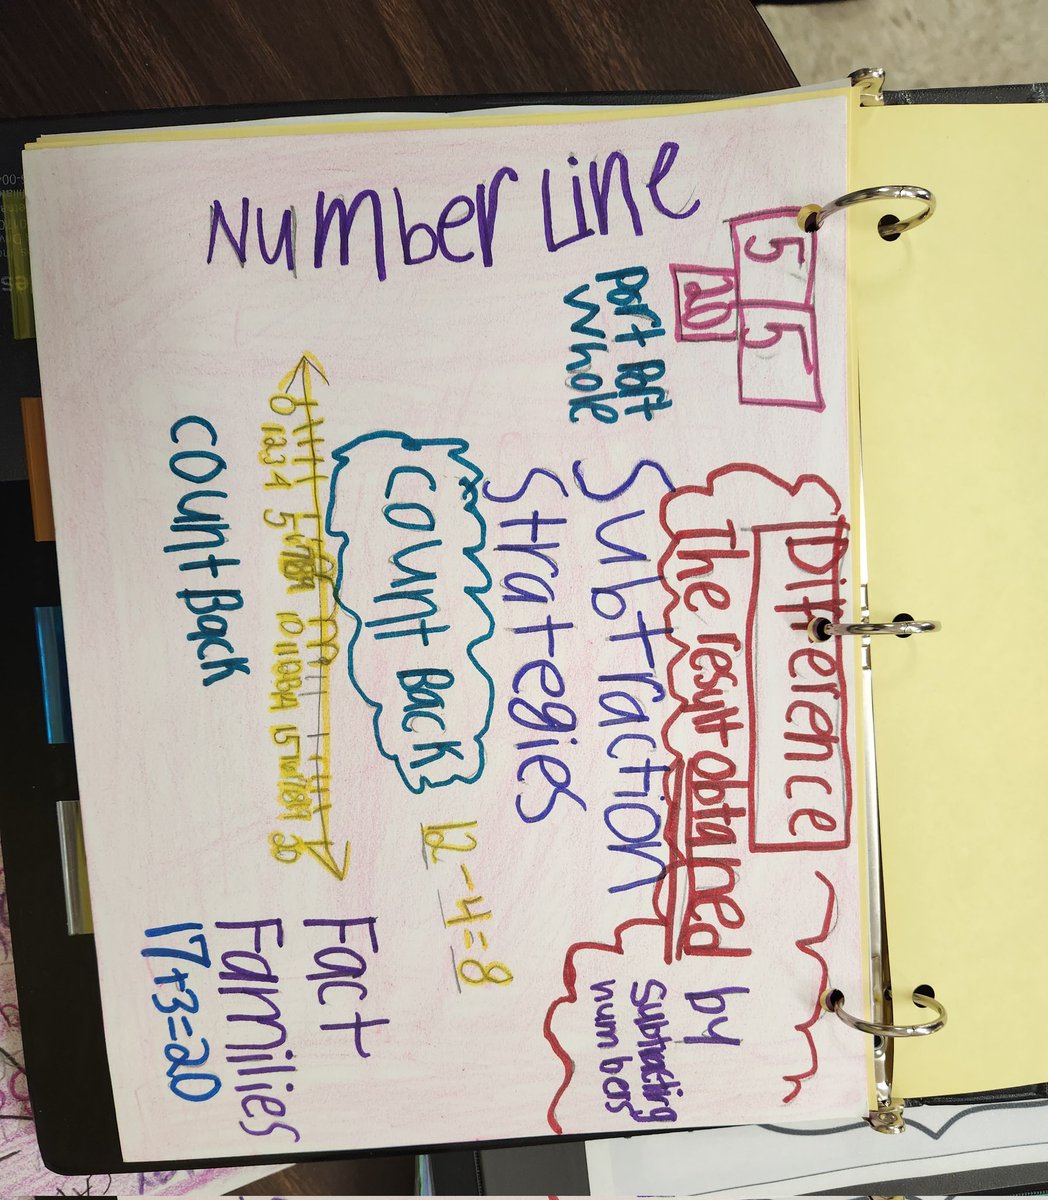 Difference
The result obtained by
subtracting
numbers
5 5
20
Part Part
Whole
Subtraction
Strategies
Number Line
Count Back
12-4=8
0 1 2 3 4 5 6 7 8 9 10 11 12 13 14 15 16 17 18 19 20
Count Back
Fact
Families
17+3=20